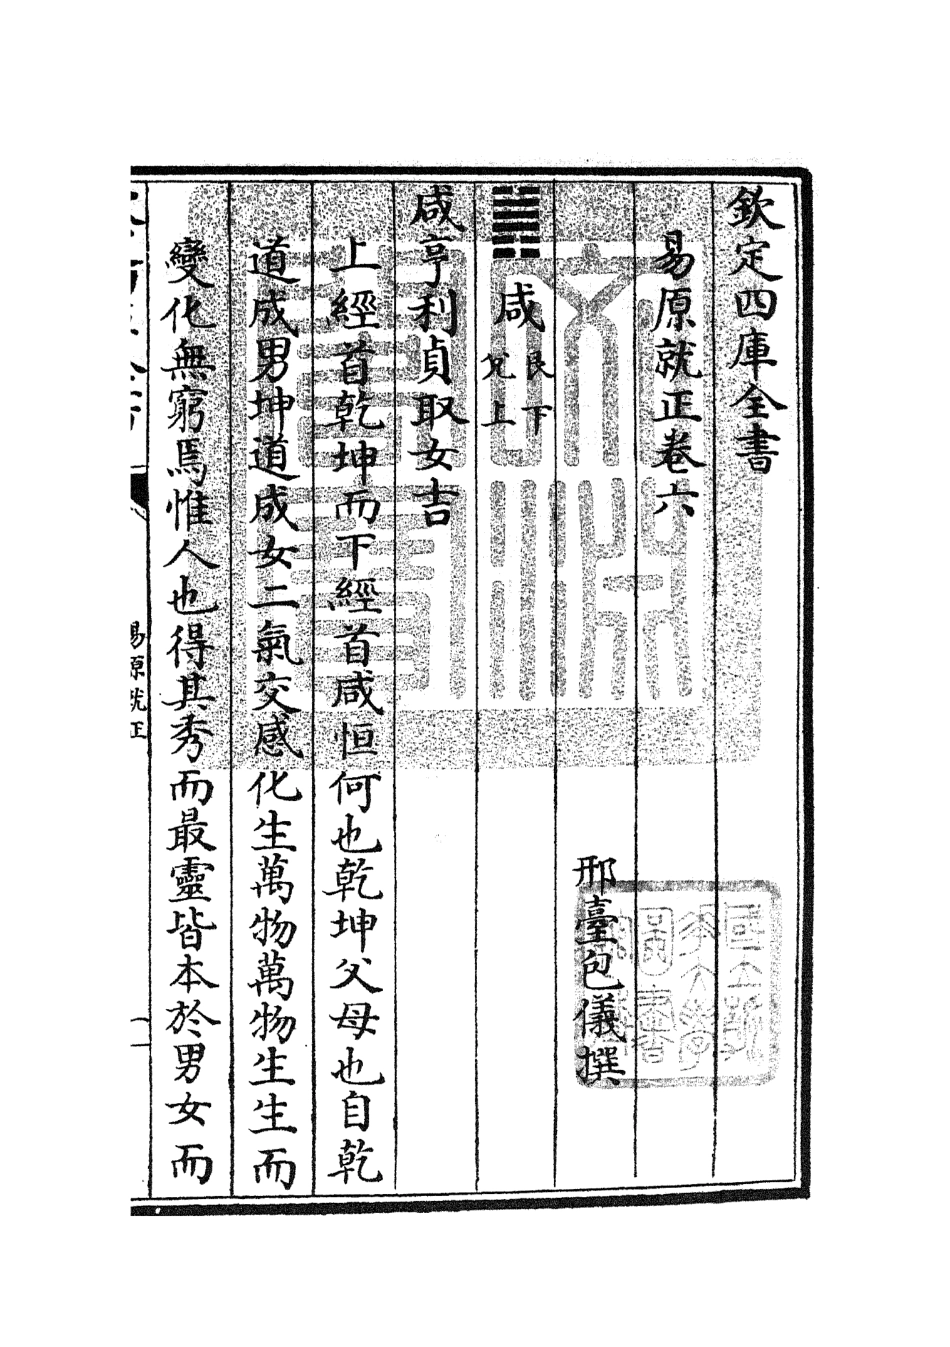 欽定四庫全書
易原就正卷六
邢臺包儀撰
䷞咸 艮下兌上
咸亨利貞取女吉
上經首乾坤而下經首咸恒何也乾坤父母也自乾
道成男坤道成女二氣交感化生萬物萬物生生而
變化無窮焉惟人也得其秀而最靈皆本於男女而
易原就正
一